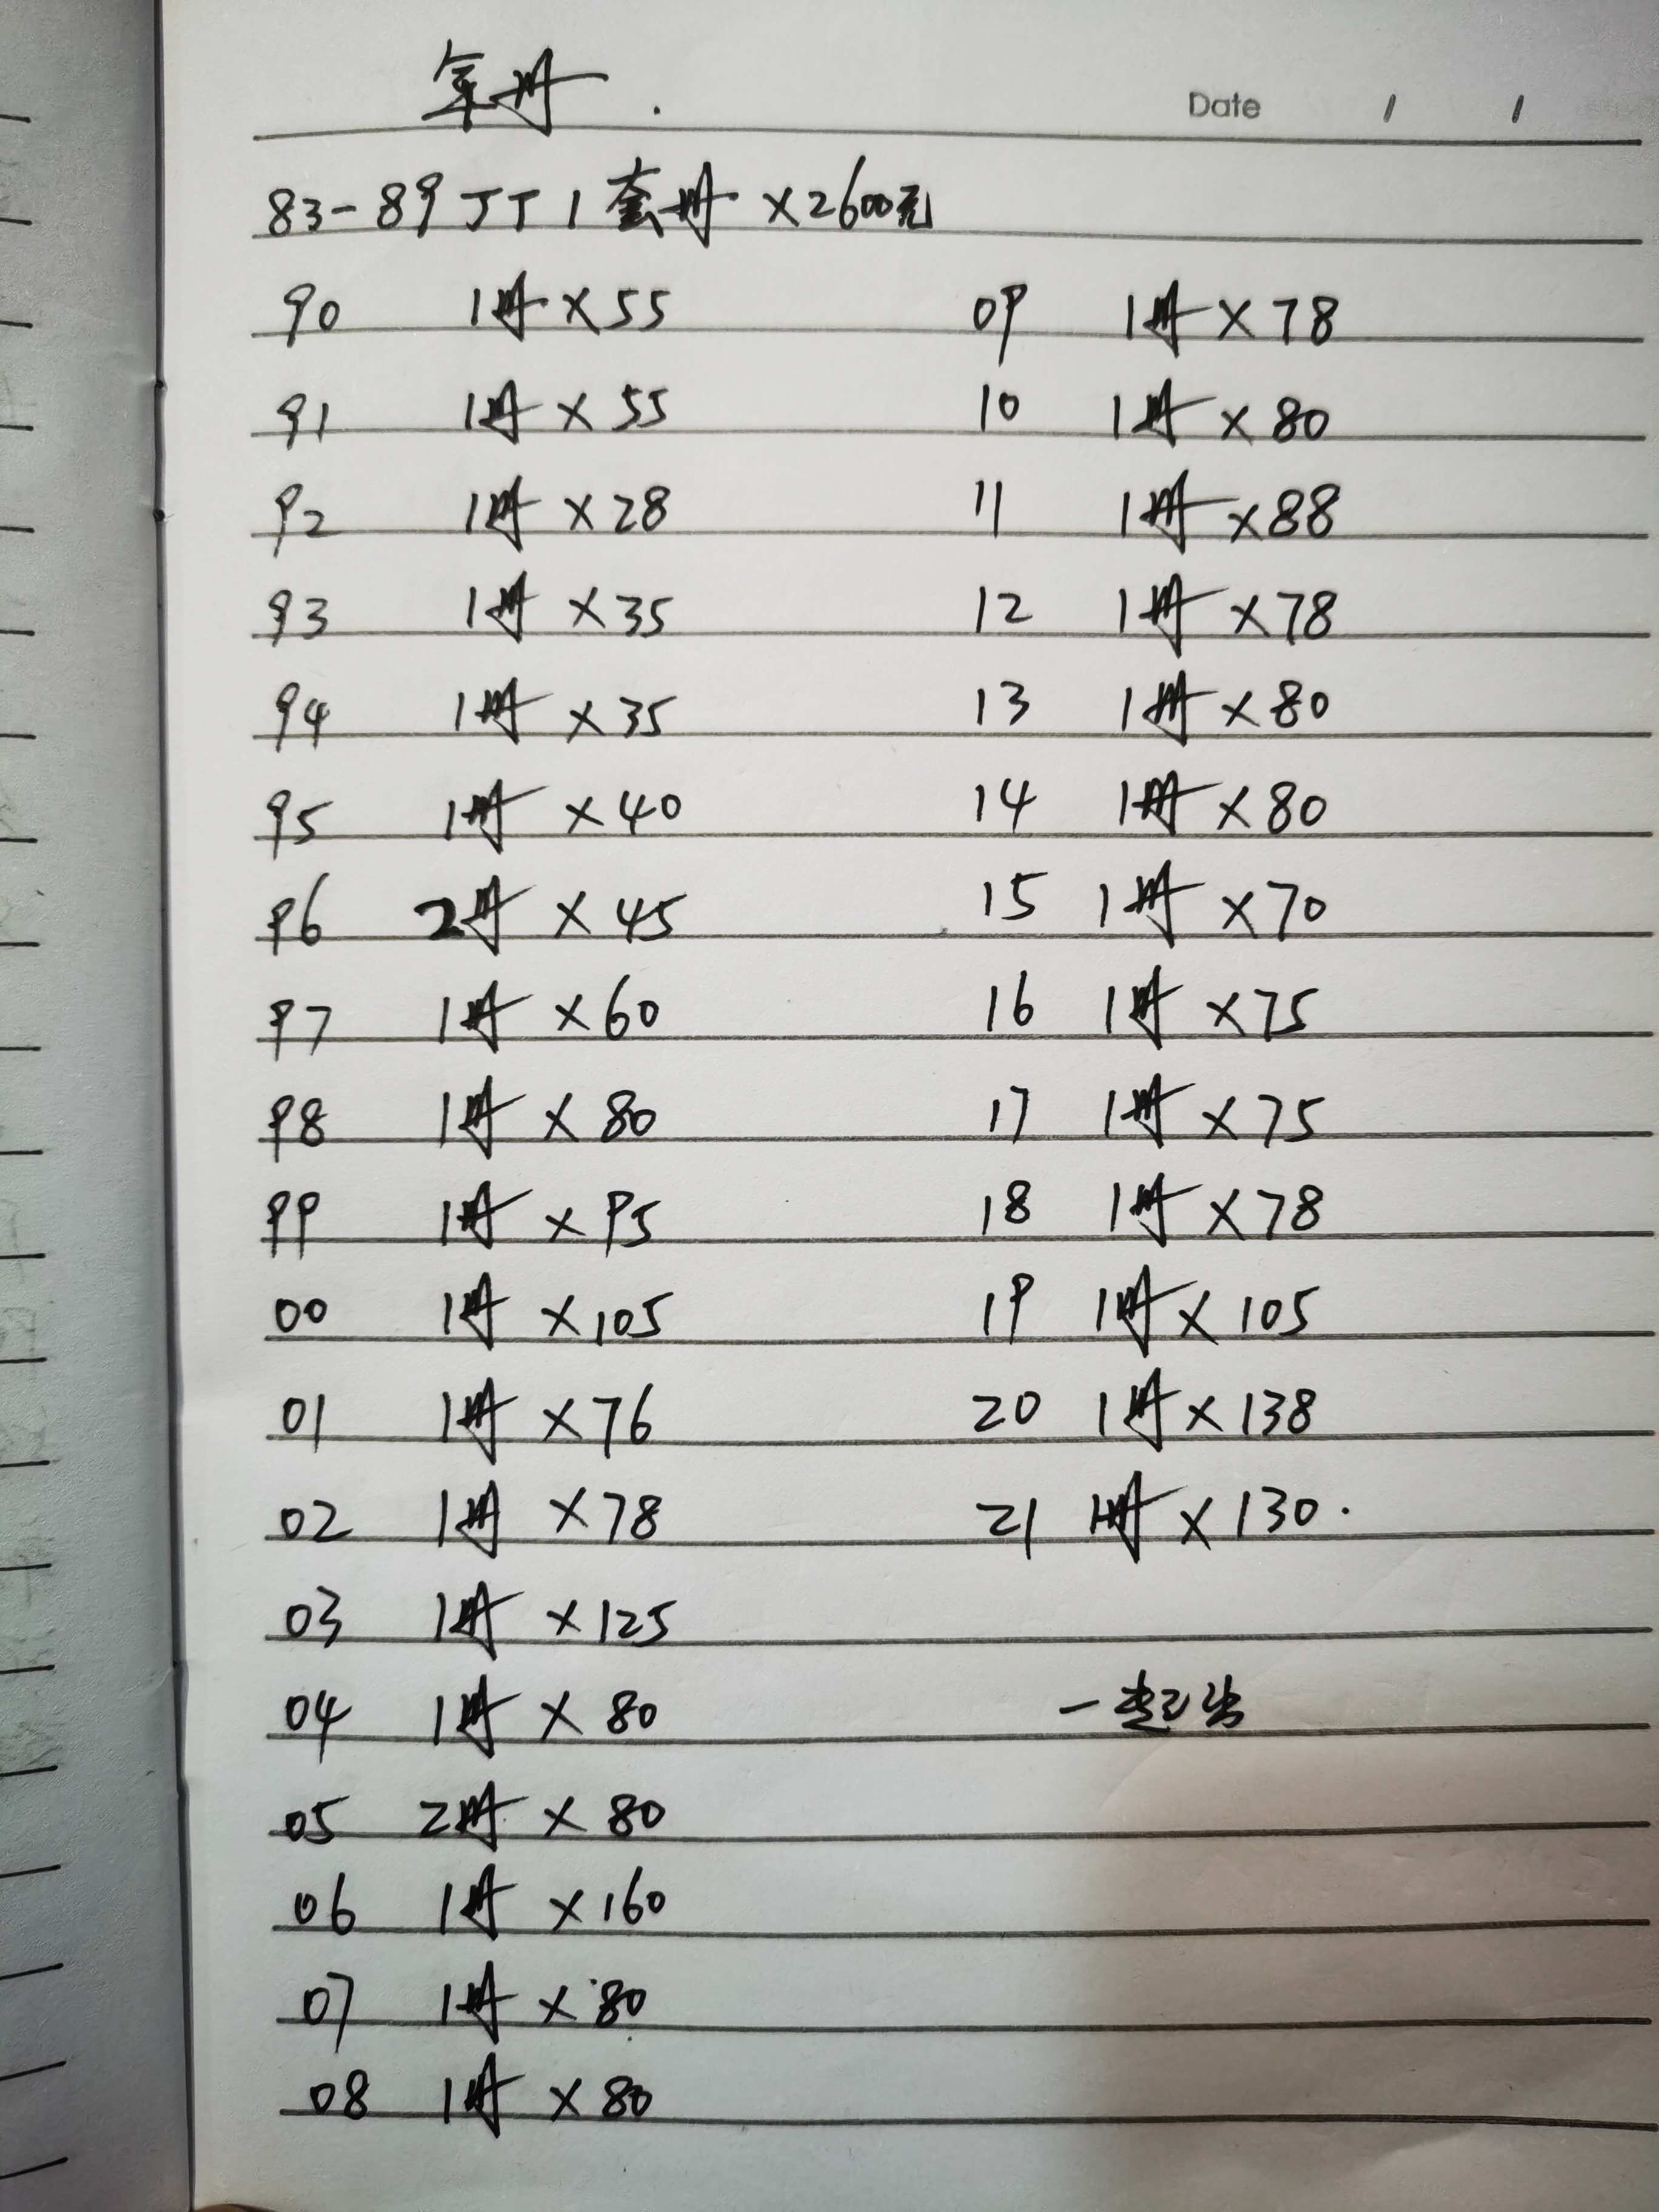 年册.
Date / /
83-89 JT 1套册 ×2600元
90 1册 ×55
91 1册 ×55
92 1册 ×28
93 1册 ×35
94 1册 ×35
95 1册 ×40
96 2册 ×45
97 1册 ×60
98 1册 ×80
99 1册 ×95
00 1册 ×105
01 1册 ×76
02 1册 ×78
03 1册 ×125
04 1册 ×80
05 2册 ×80
06 1册 ×160
07 1册 ×80
08 1册 ×80
09 1册 ×78
10 1册 ×80
11 1册 ×88
12 1册 ×78
13 1册 ×80
14 1册 ×80
15 1册 ×70
16 1册 ×75
17 1册 ×75
18 1册 ×78
19 1册 ×105
20 1册 ×138
21 1册 ×130.
一起出